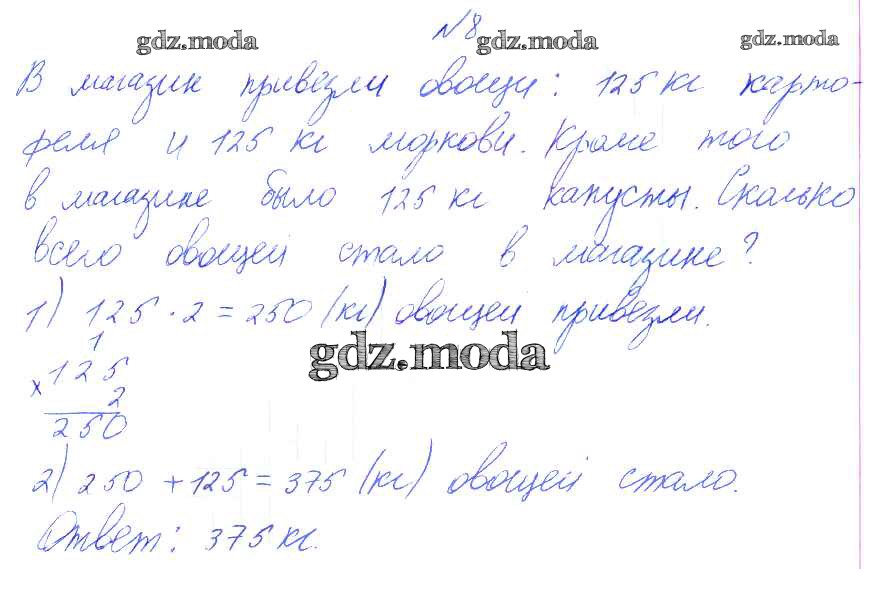 №8
gdz.moda gdz.moda gdz.moda
В магазин привезли овощи: 125 кг карто-
феля и 125 кг моркови. Кроме того
в магазине было 125 кг капусты. Сколько
всего овощей стало в магазине?
1) 125 · 2 = 250 (кг) овощей привезли.
1
gdz.moda
×125
2
250
2) 250 + 125 = 375 (кг) овощей стало.
Ответ: 375 кг.